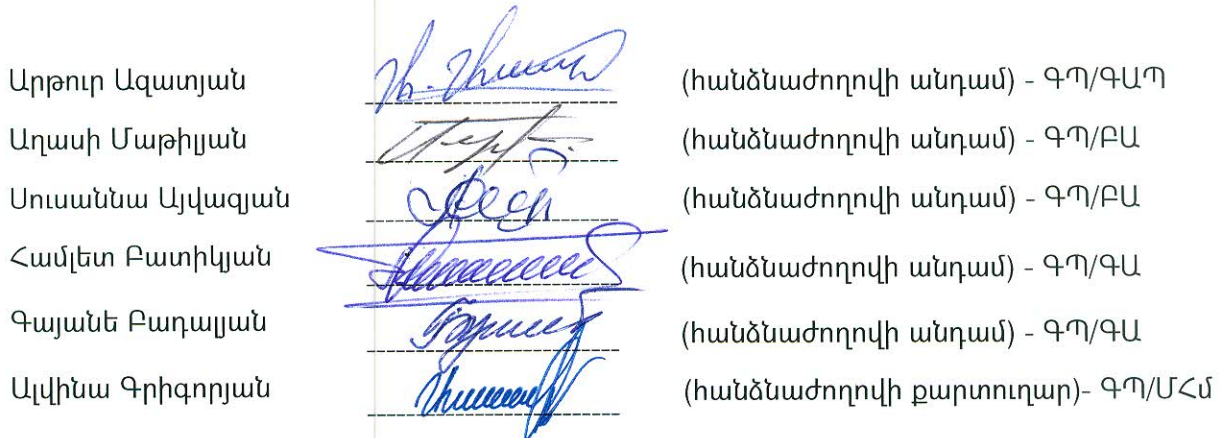 Արթուր Ազատյան (հանձնաժողովի անդամ) - ԳՊ/ԳԱՊ
Աղասի Մաթիլյան (հանձնաժողովի անդամ) - ԳՊ/ԲԱ
Սուսաննա Այվազյան (հանձնաժողովի անդամ) - ԳՊ/ԲԱ
Համլետ Բատիկյան (հանձնաժողովի անդամ) - ԳՊ/ԳԱ
Գայանե Բադալյան (հանձնաժողովի անդամ) - ԳՊ/ԳԱ
Ալվինա Գրիգորյան (հանձնաժողովի քարտուղար)- ԳՊ/ՄՀմ